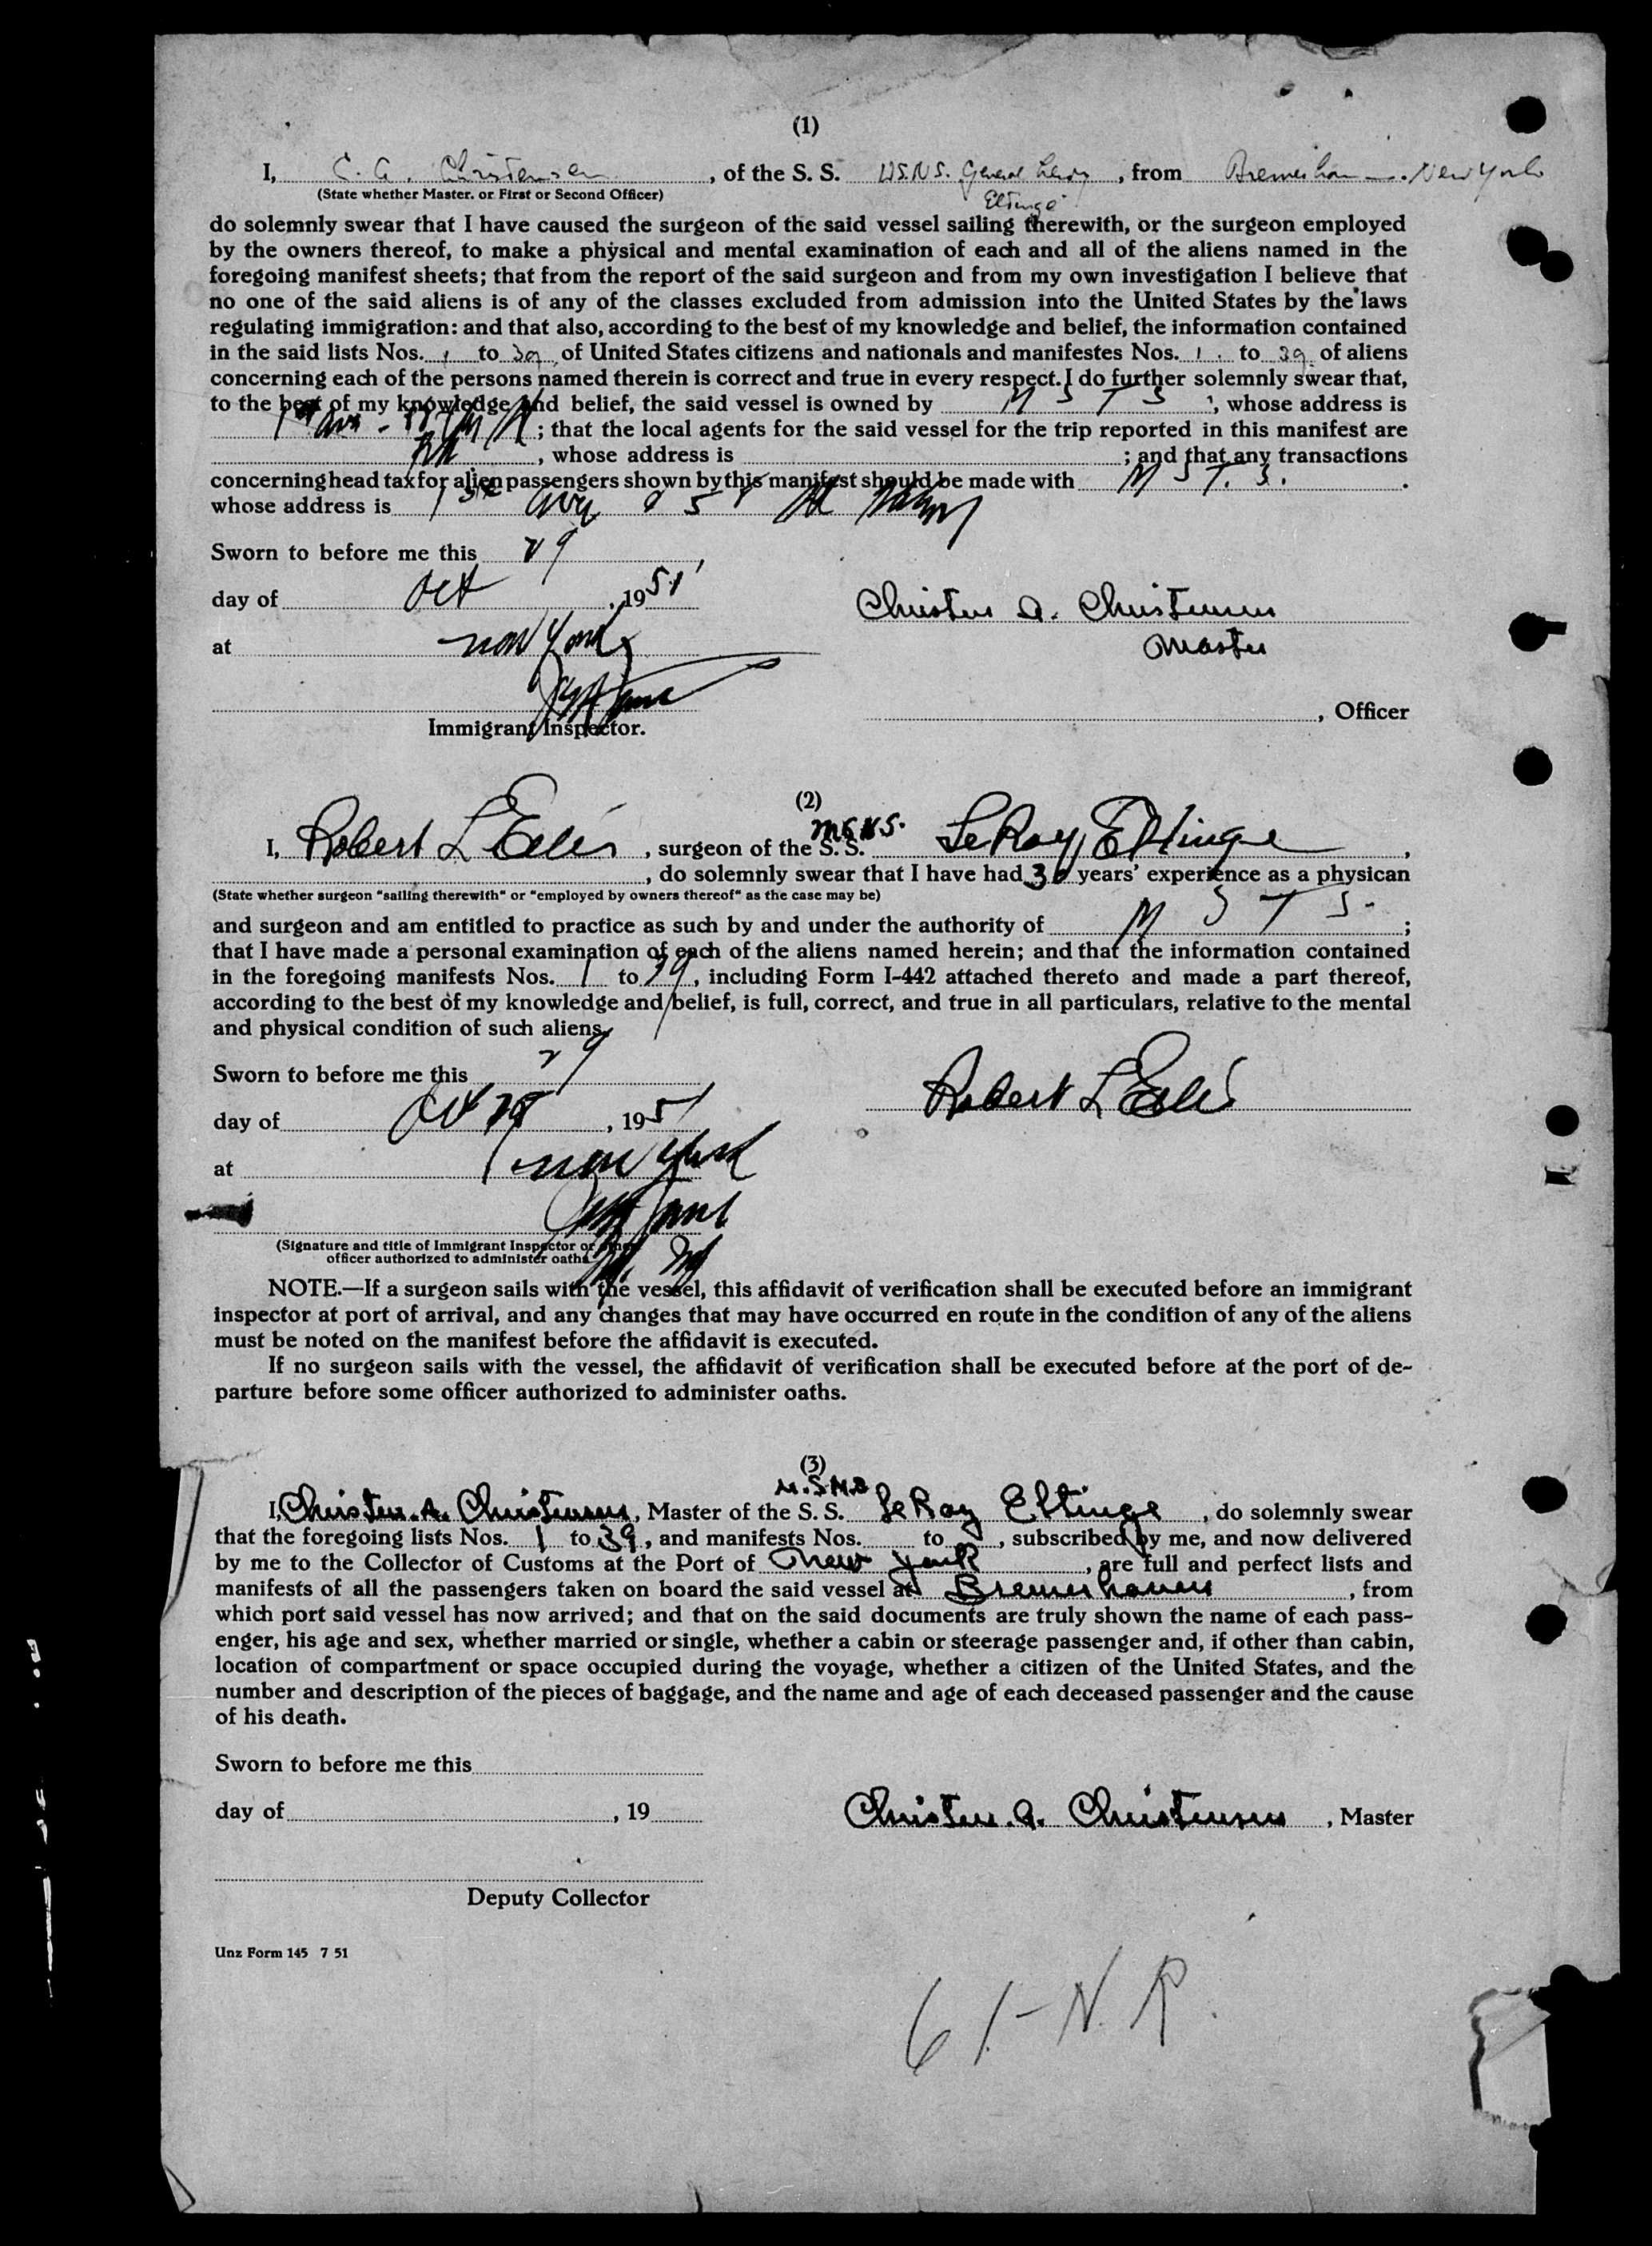 (1)
I, C. A. Christensen, of the S. S. U.S.N.S. General Leroy Eltinge, from Bremerhaven - New York
(State whether Master. or First or Second Officer)
do solemnly swear that I have caused the surgeon of the said vessel sailing therewith, or the surgeon employed
by the owners thereof, to make a physical and mental examination of each and all of the aliens named in the
foregoing manifest sheets; that from the report of the said surgeon and from my own investigation I believe that
no one of the said aliens is of any of the classes excluded from admission into the United States by the laws
regulating immigration: and that also, according to the best of my knowledge and belief, the information contained
in the said lists Nos. 1 to 39 of United States citizens and nationals and manifestes Nos. 1 to 39 of aliens
concerning each of the persons named therein is correct and true in every respect. I do further solemnly swear that,
to the best of my knowledge and belief, the said vessel is owned by M S T S, whose address is
1st Ave - 58; that the local agents for the said vessel for the trip reported in this manifest are
, whose address is ; and that any transactions
concerning head tax for alien passengers shown by this manifest should be made with M S T. S.
whose address is 1st Ave & 58 St
Sworn to before me this 29
day of Oct, 1951
Christen A. Christensen
at New York
Master
, Officer
Immigrant Inspector.
(2)
I, Robert L Ellis, surgeon of the S. S. LeRoy Eltinge,
, do solemnly swear that I have had 30 years' experience as a physican
(State whether surgeon "sailing therewith" or "employed by owners thereof" as the case may be)
and surgeon and am entitled to practice as such by and under the authority of M S T S.;
that I have made a personal examination of each of the aliens named herein; and that the information contained
in the foregoing manifests Nos. 1 to 39, including Form I-442 attached thereto and made a part thereof,
according to the best of my knowledge and belief, is full, correct, and true in all particulars, relative to the mental
and physical condition of such aliens.
Sworn to before me this 29
Robert L Ellis
day of Oct, 1951
at New York
(Signature and title of Immigrant Inspector or other
officer authorized to administer oaths
NOTE.—If a surgeon sails with the vessel, this affidavit of verification shall be executed before an immigrant
inspector at port of arrival, and any changes that may have occurred en route in the condition of any of the aliens
must be noted on the manifest before the affidavit is executed.
If no surgeon sails with the vessel, the affidavit of verification shall be executed before at the port of de-
parture before some officer authorized to administer oaths.
(3)
U.S.N.S
I, Christen. A. Christensen, Master of the S. S. LeRoy Eltinge, do solemnly swear
that the foregoing lists Nos. 1 to 39, and manifests Nos. to , subscribed by me, and now delivered
by me to the Collector of Customs at the Port of New York, are full and perfect lists and
manifests of all the passengers taken on board the said vessel at Bremerhaven, from
which port said vessel has now arrived; and that on the said documents are truly shown the name of each pass-
enger, his age and sex, whether married or single, whether a cabin or steerage passenger and, if other than cabin,
location of compartment or space occupied during the voyage, whether a citizen of the United States, and the
number and description of the pieces of baggage, and the name and age of each deceased passenger and the cause
of his death.
Sworn to before me this
day of , 19
Christen. A. Christensen, Master
Deputy Collector
Unz Form 145 7 51
61-N.R.